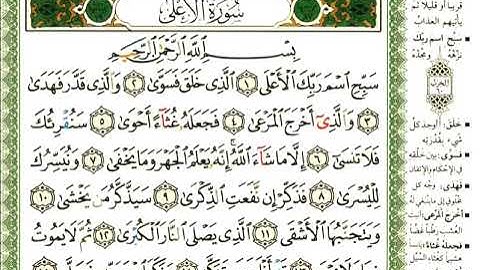 سُورَةُ الأَعْلَى
بِسْمِ اللَّهِ الرَّحْمَٰنِ الرَّحِيمِ
سَبِّحِ اسْمَ رَبِّكَ الْأَعْلَى ١ الَّذِي خَلَقَ فَسَوَّىٰ ٢ وَالَّذِي قَدَّرَ فَهَدَىٰ
٣ وَالَّذِي أَخْرَجَ الْمَرْعَىٰ ٤ فَجَعَلَهُ غُثَاءً أَحْوَىٰ ٥ سَنُقْرِئُكَ
فَلَا تَنسَىٰ ٦ إِلَّا مَا شَاءَ اللَّهُ إِنَّهُ يَعْلَمُ الْجَهْرَ وَمَا يَخْفَىٰ ٧ وَنُيَسِّرُكَ
لِلْيُسْرَىٰ ٨ فَذَكِّرْ إِن نَّفَعَتِ الذِّكْرَىٰ ٩ سَيَذَّكَّرُ مَن يَخْشَىٰ ١٠
وَيَتَجَنَّبُهَا الْأَشْقَى ١١ الَّذِي يَصْلَى النَّارَ الْكُبْرَىٰ ١٢ ثُمَّ لَا يَمُوتُ
قريباً أو قليلاً ثم
يأتيهم العذاب
سبح اسم ربك
نزهه ومجده
خلق: أوجد كل
شيء بقدرته
فسوى: بين خلقه
في الإحكام والإتقان
فهدى: وجه كل
أخرج المرعى: أنبت
فجعله غثاء